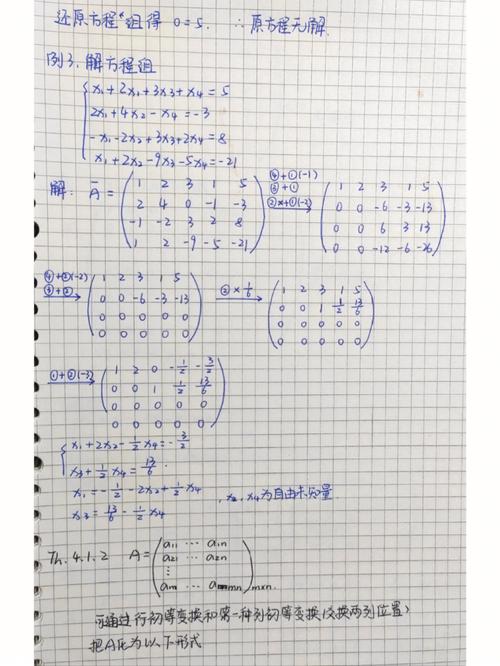 还原方程组得 0=5. ∴原方程无解.
例3. 解方程组
x₁+2x₂+3x₃+x₄=5
2x₁+4x₂-x₄=-3
-x₁-2x₂+3x₃+2x₄=8
x₁+2x₂-9x₃-5x₄=-21
解: Ā= ( 1 2 3 1 5
2 4 0 -1 -3
-1 -2 3 2 8
1 2 -9 -5 -21 )
④+①(-1)
③+①
②+①(-2)
( 1 2 3 1 5
0 0 -6 -3 -13
0 0 6 3 13
0 0 -12 -6 -26 )
④+②(-2)
③+②
( 1 2 3 1 5
0 0 -6 -3 -13
0 0 0 0 0
0 0 0 0 0 )
( 1 2 3 1 5
0 0 1 1/2 13/6
0 0 0 0 0
0 0 0 0 0 )
①+②(-3)
( 1 2 0 -1/2 -3/2
0 0 1 1/2 13/6
0 0 0 0 0
0 0 0 0 0 )
x₁+2x₂-1/2x₄=-3/2
x₃+1/2x₄=13/6.
x₃=13/6-1/2x₄
x₂,x₄为自由未知量
Th.4.1.2 A= ( a₁₁ … a₁ₙ
a₂₁ … a₂ₙ
⋮
mxn.
可通过行初等变换和第一种列初等变换(交换两列位置)
把A化为以下形式